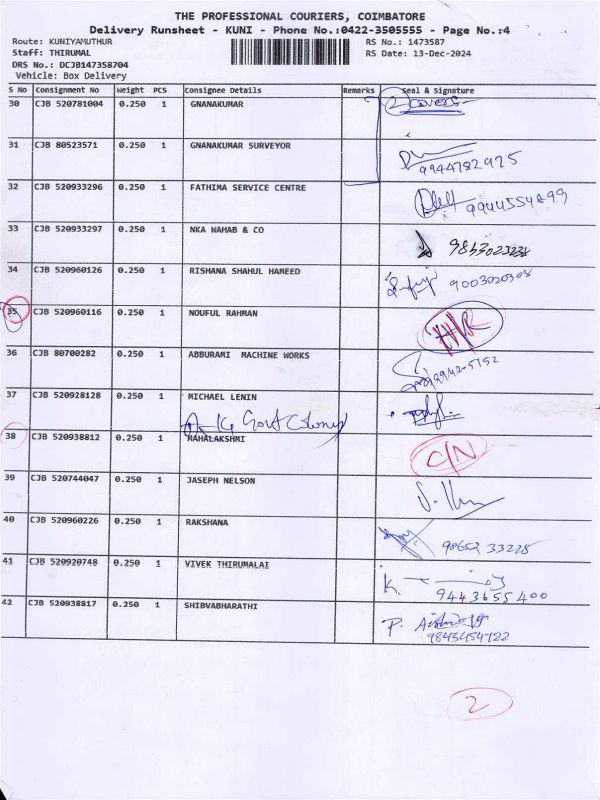 THE PROFESSIONAL COURIERS, COIMBATORE
Delivery Runsheet - KUNI - Phone No.:0422-3505555 - Page No.:4
Route: KUNIYAMUTHUR RS No.: 1473587
Staff: THIRUMAL RS Date: 13-Dec-2024
DRS No.: DCJB147358704
Vehicle: Box Delivery
S No Consignment No Weight PCS Consignee Details Remarks Seal & Signature
30 CJB 520781004 0.250 1 GNANAKUMAR 2 covers
31 CJB 80523571 0.250 1 GNANAKUMAR SURVEYOR
9944782975
32 CJB 520933296 0.250 1 FATHIMA SERVICE CENTRE
9944554899
33 CJB 520933297 0.250 1 NKA WAHAB & CO
9843023238
34 CJB 520960126 0.250 1 RISHANA SHAHUL HAMEED
9003020308
35 CJB 520960116 0.250 1 NOUFUL RAHMAN
36 CJB 80700282 0.250 1 ABBURAMI MACHINE WORKS
37 CJB 520928128 0.250 1 MICHAEL LENIN
Govt Colony
38 CJB 520938812 0.250 1 MAHALAKSHMI C/N
39 CJB 520744047 0.250 1 JASEPH NELSON
40 CJB 520960226 0.250 1 RAKSHANA
98652 33228
41 CJB 520920748 0.250 1 VIVEK THIRUMALAI
K.
9443655400
42 CJB 520938817 0.250 1 SHIBVABHARATHI
P.
9843454722
2